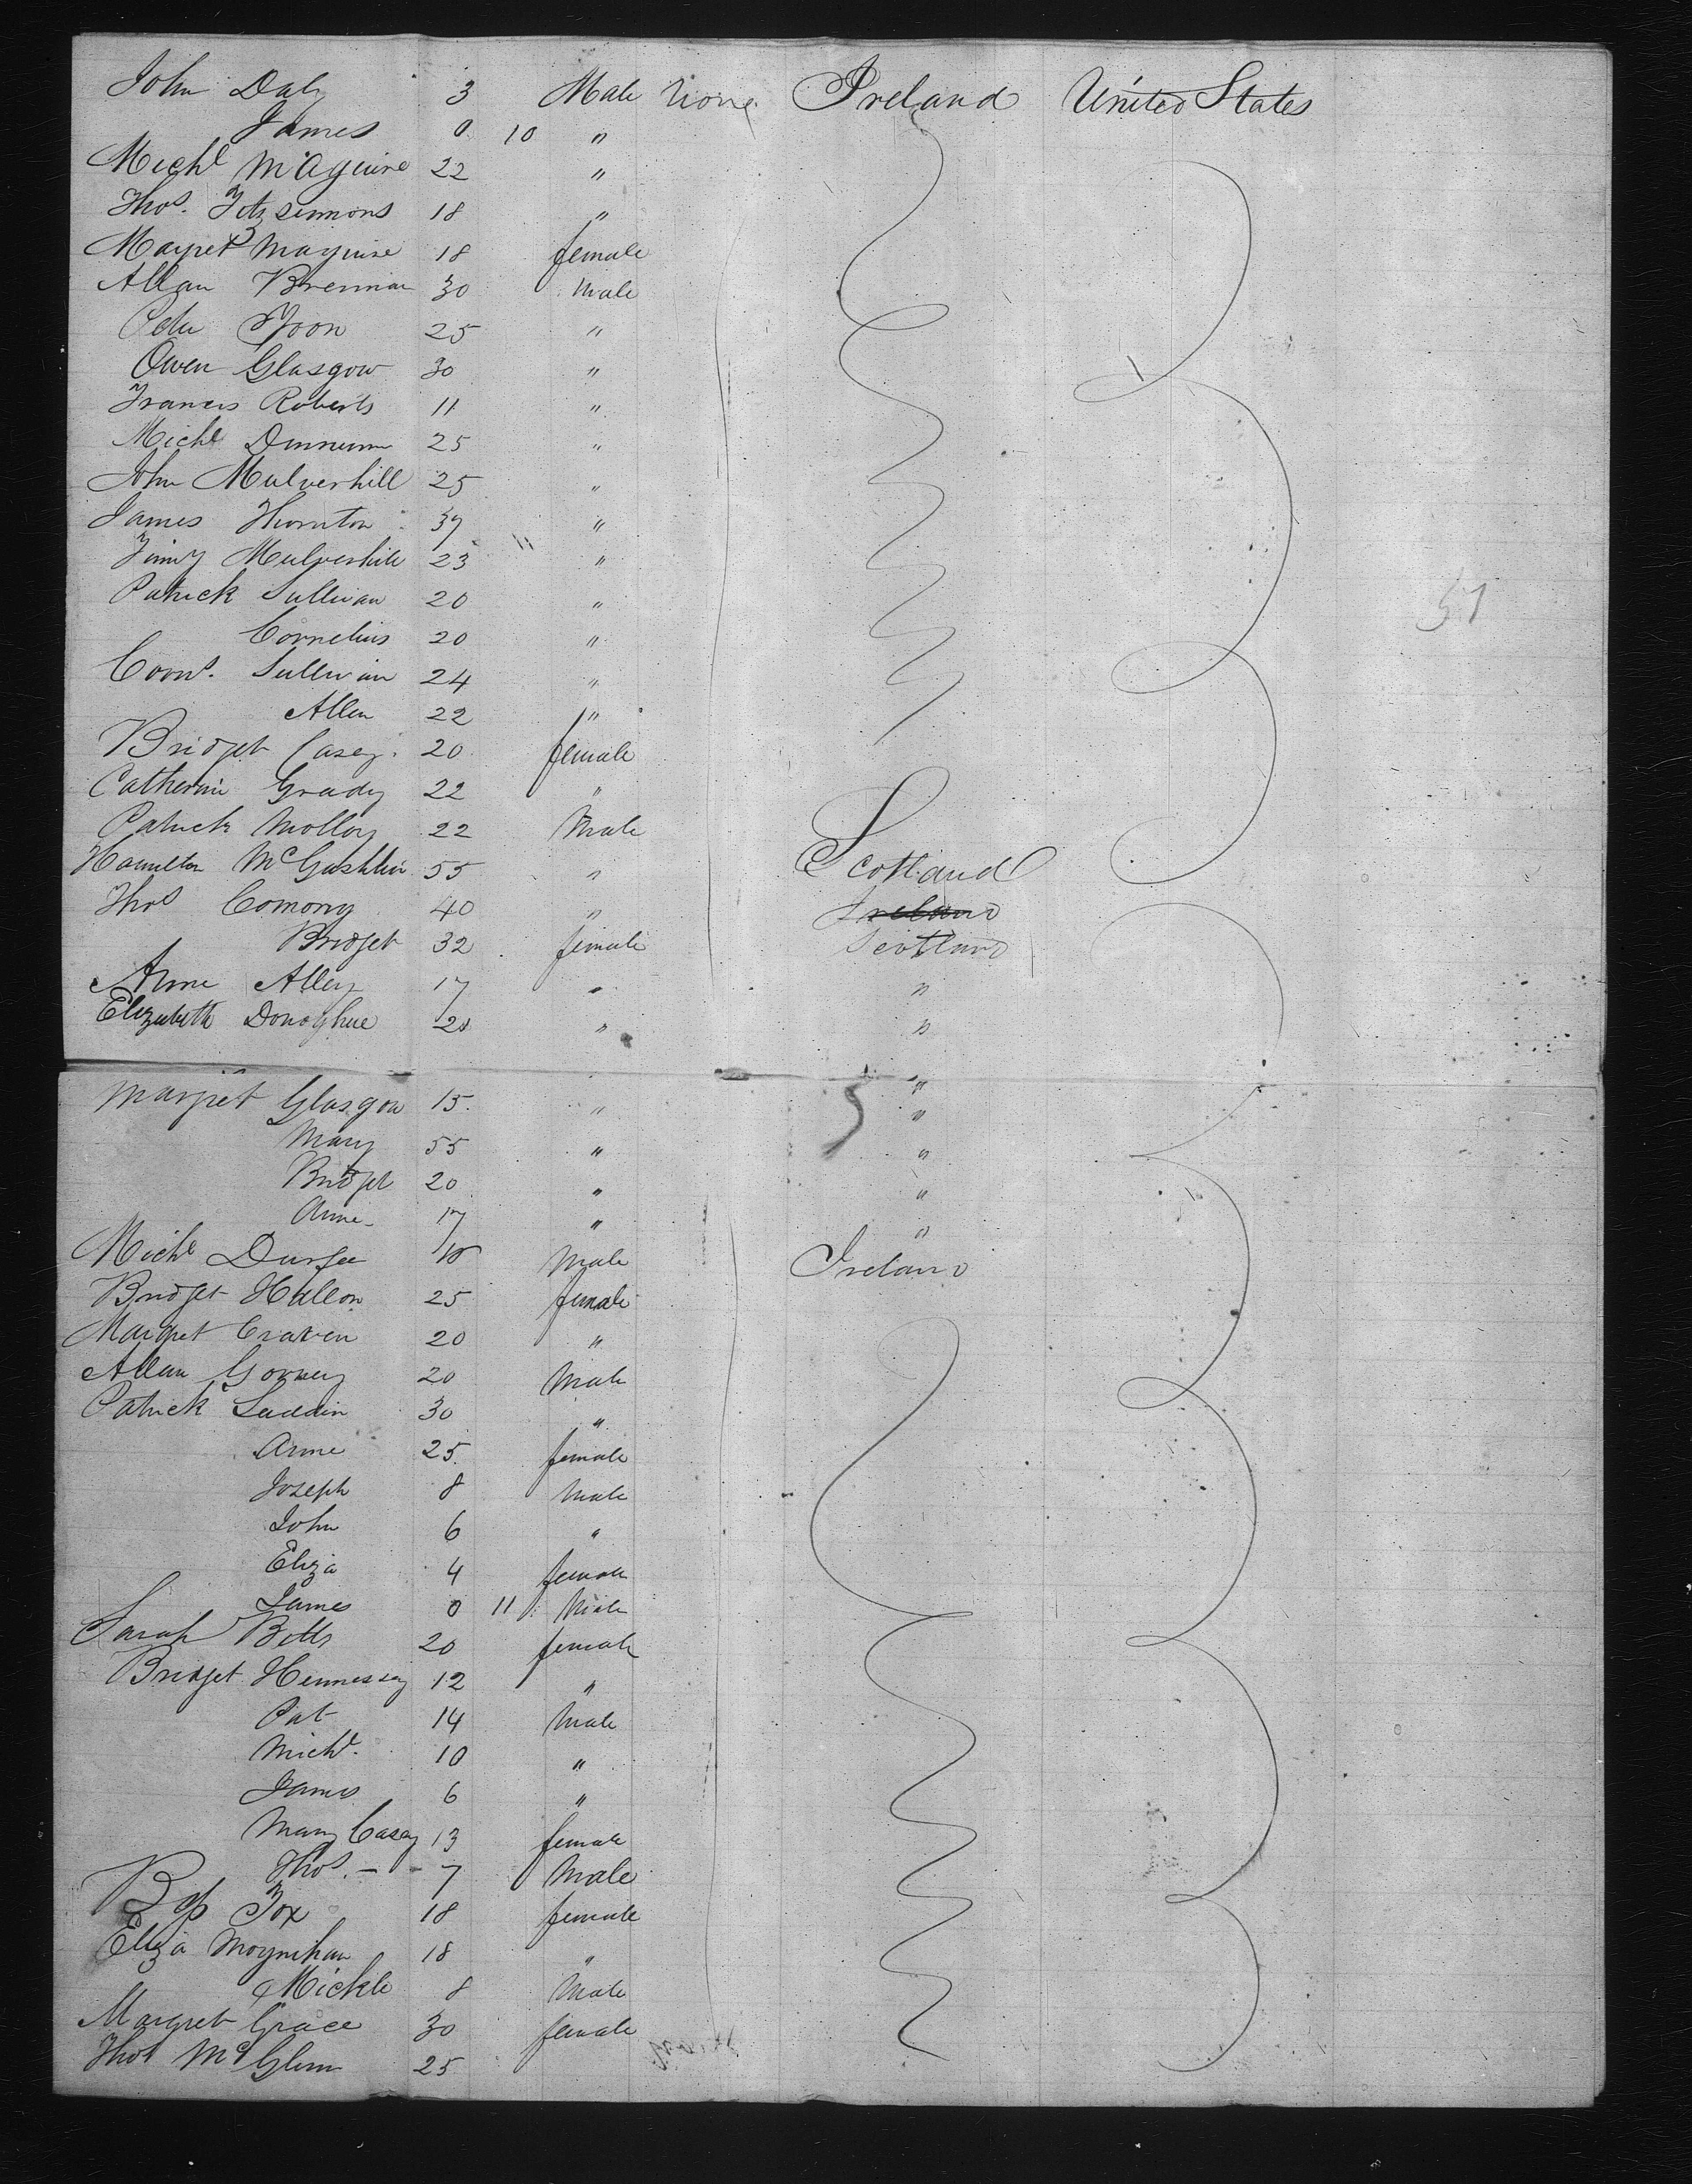 John Daly 3 Male None Ireland United States
James 0 10 "
Michl McAguire 22 "
Thos. Fitzsimmons 18 "
Margret Maguire 18 female
Allan Brennan 30 Male
Peter Noon 25 "
Owen Glasgow 30 "
Francis Roberts 11 "
Michl 25 "
John Mulverhill 25 "
James Thornton 37 "
Mulverhill 23 "
Patrick Sullivan 20 "
Cornelius 20 "
Corns. Sullivan 24 "
Allen 22 "
Bridget Casey 20 female
Catherine Grady 22 "
Patrick Molloy 22 Male
Hamilton McGushlin 55 " Scotland
Thos Comony 40 " Ireland
Bridget 32 female Scotland
Anne Alley 17 " "
Elizabeth Donoghue 21 " "
"
Margret Glasgow 15 " "
Mary 55 " "
Bridget 20 " "
Anne 17 " "
Michl Durfee 18 Male Ireland
Bridget Hallon 25 female
Margret Craven 20 "
Allan 20 Male
Patrick Laddin 30 "
Anne 25 female
Joseph 8 Male
John 6 "
Eliza 4 female
James 0 11 Male
Sarah Betts 20 female
Bridget Hennessey 12 "
Pat 14 Male
Michl. 10 "
James 6 "
Mary Casey 13 female
Thos. - - 7 Male
Fox 18 female
Eliza Moynihan 18 "
Mickle 8 Male
Margret Grace 30 female
Thos McGlinn 25
51